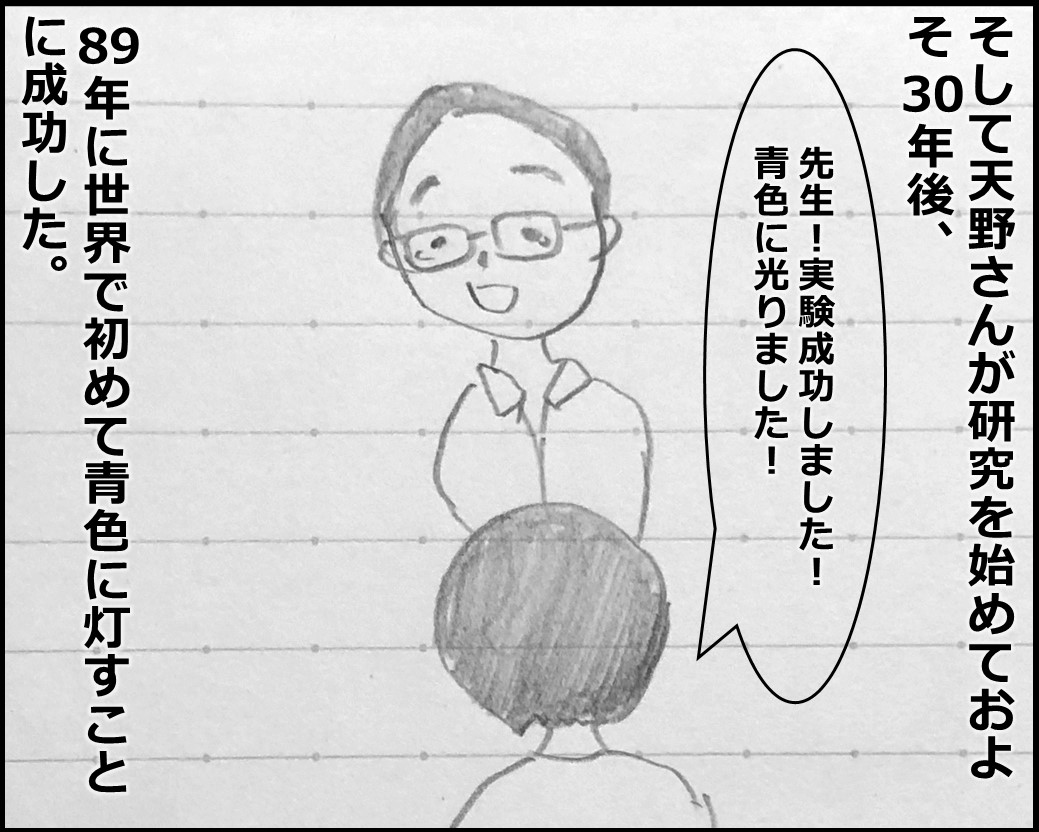 そして天野さんが研究を始めておよ
そ30年後、
先生！実験成功しました！
青色に光りました！
89年に世界で初めて青色に灯すこと
に成功した。